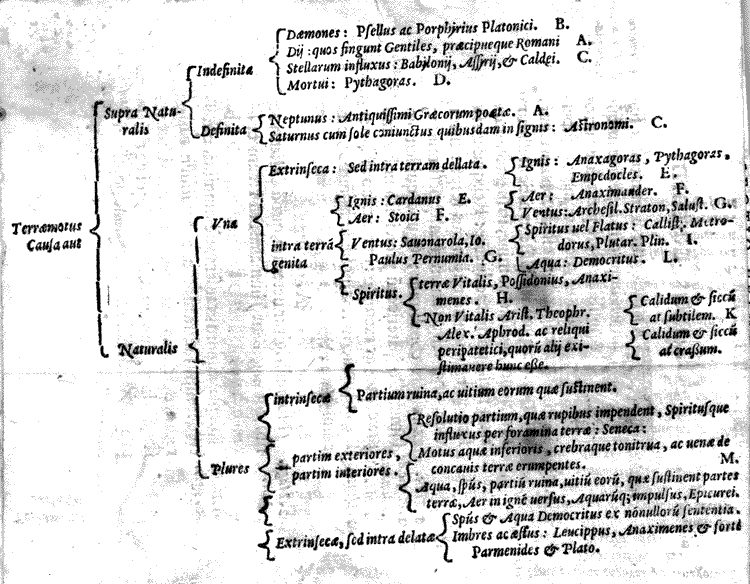 Dæmones: Psellus ac Porphyrius Platonici. B.
Dij: quos fingunt Gentiles, præcipueque Romani A.
Indefinita
Stellarum influxus: Babylonij, Assyrij, & Caldei. C.
Mortui: Pythagoras. D.
Supra Natu-
ralis
Neptunus: Antiquissimi Græcorum poetæ. A.
Definita
Saturnus cum sole coniunctus quibusdam in signis: Astronomi. C.
Terræmotus
Causa aut
Extrinseca: Sed intra terram dellata.
Ignis: Anaxagoras, Pythagoras,
Empedocles. E.
Aer: Anaximander. F.
Ventus: Archesil. Straton, Salust. G.
Vna
intra terrā
genita
Ignis: Cardanus E.
Aer: Stoici F.
Ventus: Sauonarola, Io.
Paulus Pernumia. G.
Spiritus uel Flatus: Callist. Metro-
dorus, Plutar. Plin. I.
Aqua: Democritus. L.
Spiritus.
terræ Vitalis, Possidonius, Anaxi-
menes. H.
Non Vitalis Arist. Theophr.
Alex. Aphrod. ac reliqui
peripatetici, quorū alij exi-
stimauere hunc esse.
Calidum & siccū
at subtilem. K
Calidum & siccū
at craßum.
Naturalis
Plures
intrinsecæ
Partium ruina, ac uitium eorum quæ sustinent.
partim exteriores,
partim interiores.
Resolutio partium, quæ rupibus impendent, Spiritusque
influxus per foramina terræ: Seneca:
Motus aquæ inferioris, crebraque tonitrua, ac uenæ de
concauis terræ erumpentes. M.
Aqua, spūs, partiū ruina, uitiū eorū, quæ sustinent partes
terræ, Aer in ignē uersus, Aquarūq; impulsus, Epicurei.
Extrinsecæ, sed intra delatæ
Spūs & Aqua Democritus ex nōnullorū sententia.
Imbres ac æstus: Leucippus, Anaximenes & fortè
Parmenides & Plato.